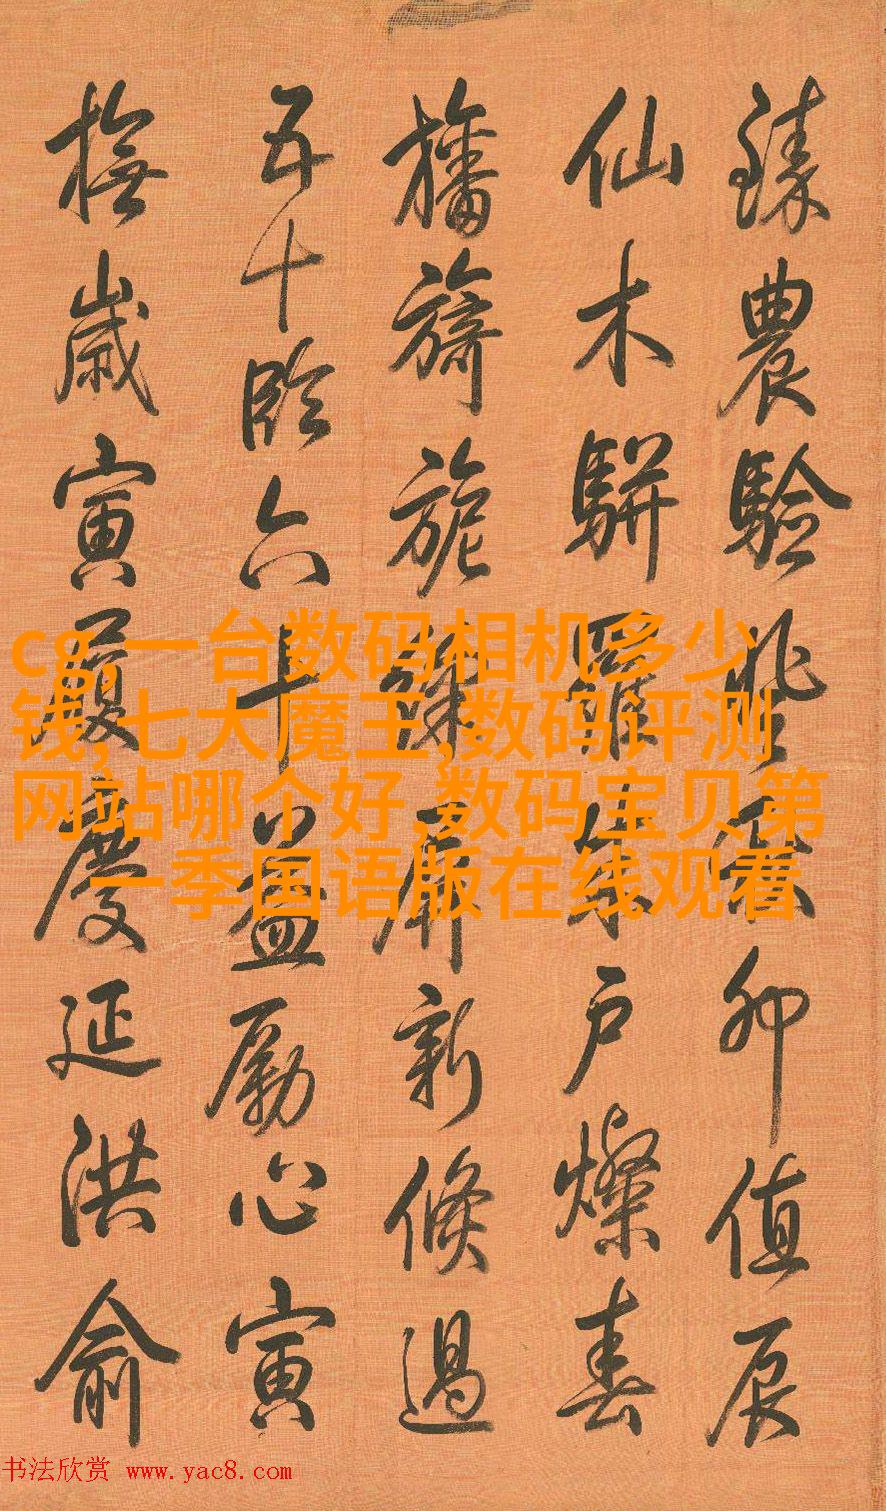 臻農驗卯值辰
仙木駢羅朱户燦春
旛旖旎綵屏新倏過
五十臨六益勵心寅
撫歲寅履慶延洪俞
cg,一台数码相机多少
钱,七大魔王,数码评测
网站哪个好,数码宝贝第
一季国语版在线观看
书法欣赏 www.yac8.com